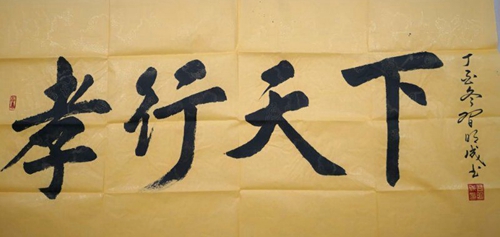 孝行天下
丁亥冬 明成书